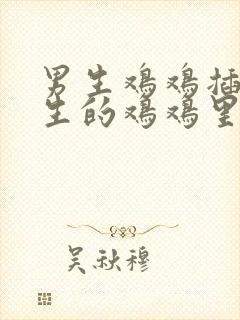 男生鸡鸡插
生的鸡鸡里
吴秋穆